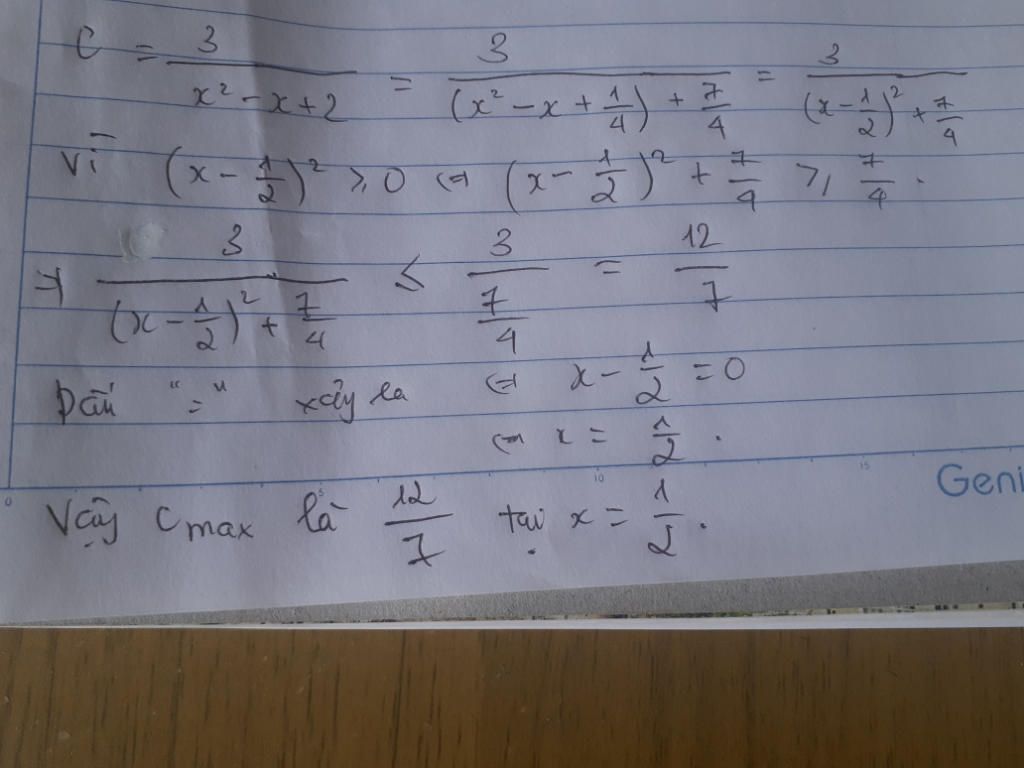 C = 3/(x² - x + 2) = 3/((x² - x + 1/4) + 7/4) = 3/((x - 1/2)² + 7/4)
Vì (x - 1/2)² ≥ 0 ⇔ (x - 1/2)² + 7/4 ≥ 7/4.
⇒ 3/((x - 1/2)² + 7/4) ≤ 3/(7/4) = 12/7
Dấu "=" xảy ra ⇔ x - 1/2 = 0
⇔ x = 1/2.
0 5 10 15 Geni
Vậy Cmax là 12/7 tại x = 1/2.